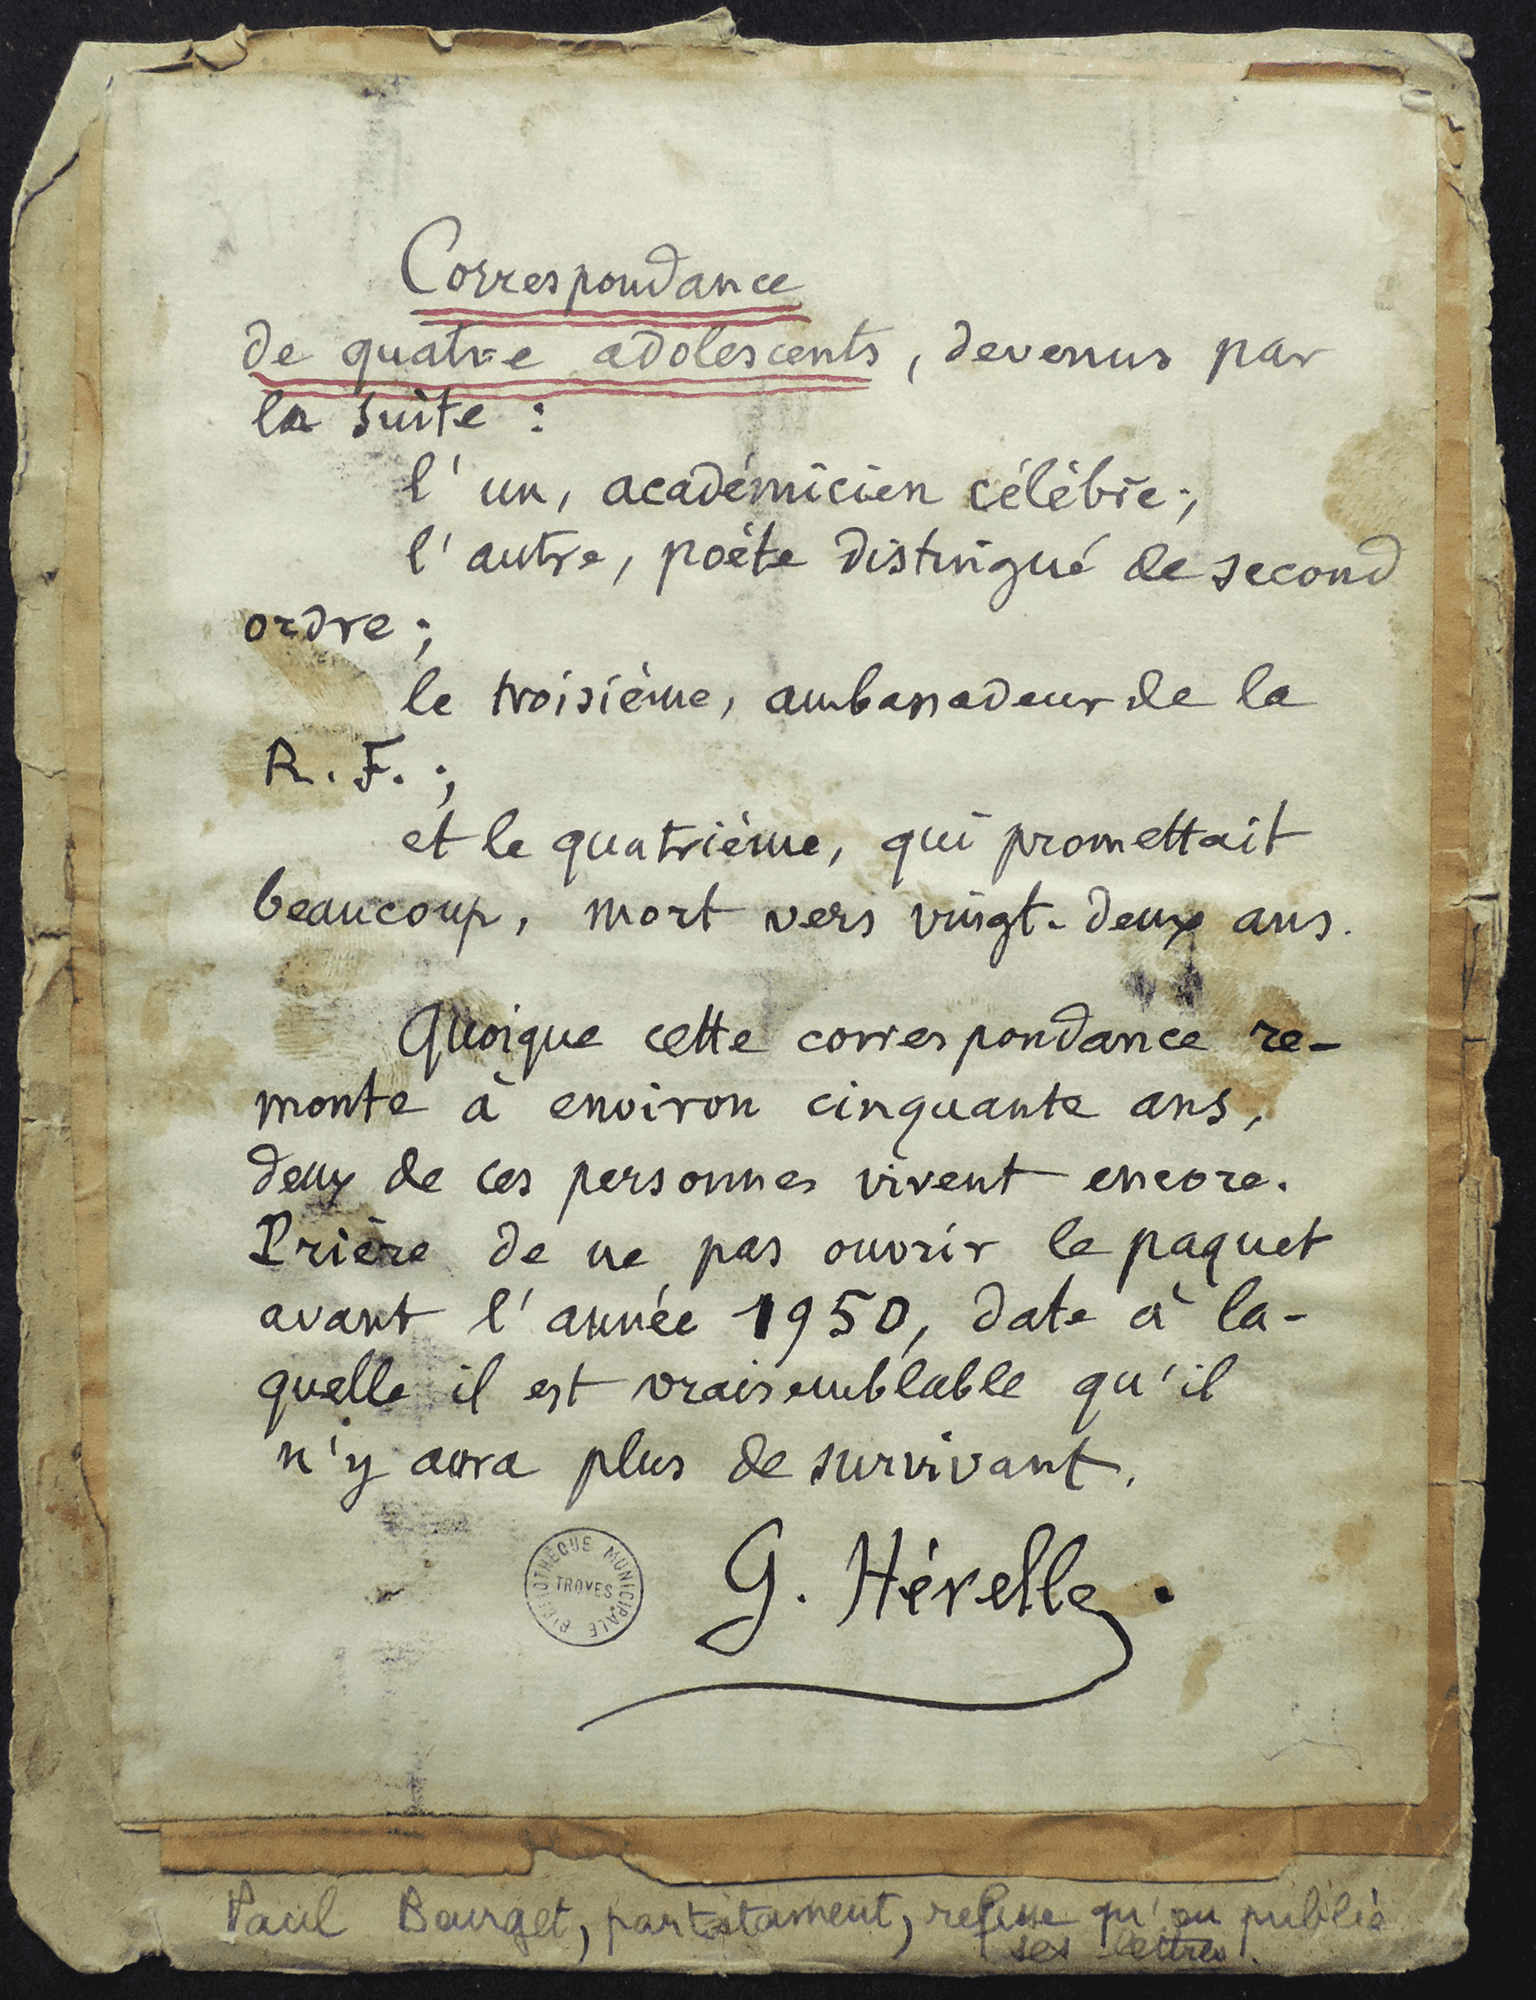 Correspondance
de quatre adolescents, devenus par
la suite :
l'un, académicien célèbre ;
l'autre, poète distingué de second
ordre ;
le troisième, ambassadeur de la
R. F. ;
et le quatrième, qui promettait
beaucoup, mort vers vingt-deux ans.
Quoique cette correspondance re-
monte à environ cinquante ans,
deux de ces personnes vivent encore.
Prière de ne pas ouvrir le paquet
avant l'année 1950, date à la-
quelle il est vraisemblable qu'il
n'y aura plus de survivant.
BIBLIOTHÈQUE MUNICIPALE
TROYES
G. Hérelle.
Paul Bourget, par testament, refuse qu'on publie
ses lettres.